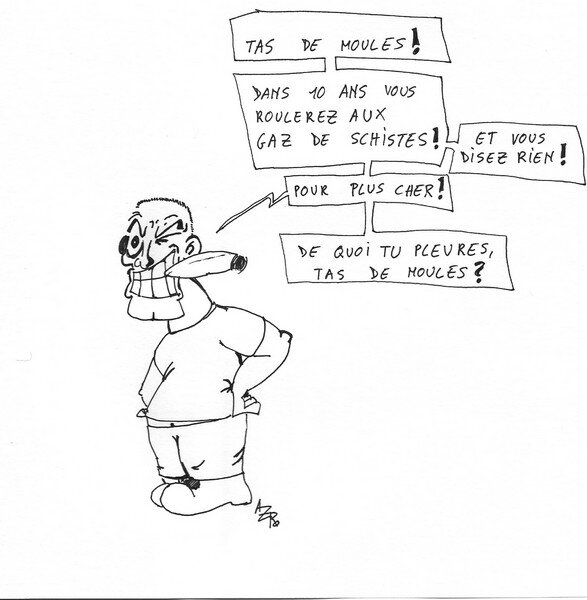 TAS DE MOULES!
DANS 10 ANS VOUS
ROULEREZ AUX
GAZ DE SCHISTES!
ET VOUS
DISEZ RIEN!
POUR PLUS CHER!
DE QUOI TU PLEURES,
TAS DE MOULES?